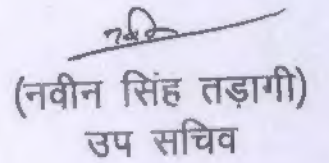 नवीन
(नवीन सिंह तड़ागी)
उप सचिव